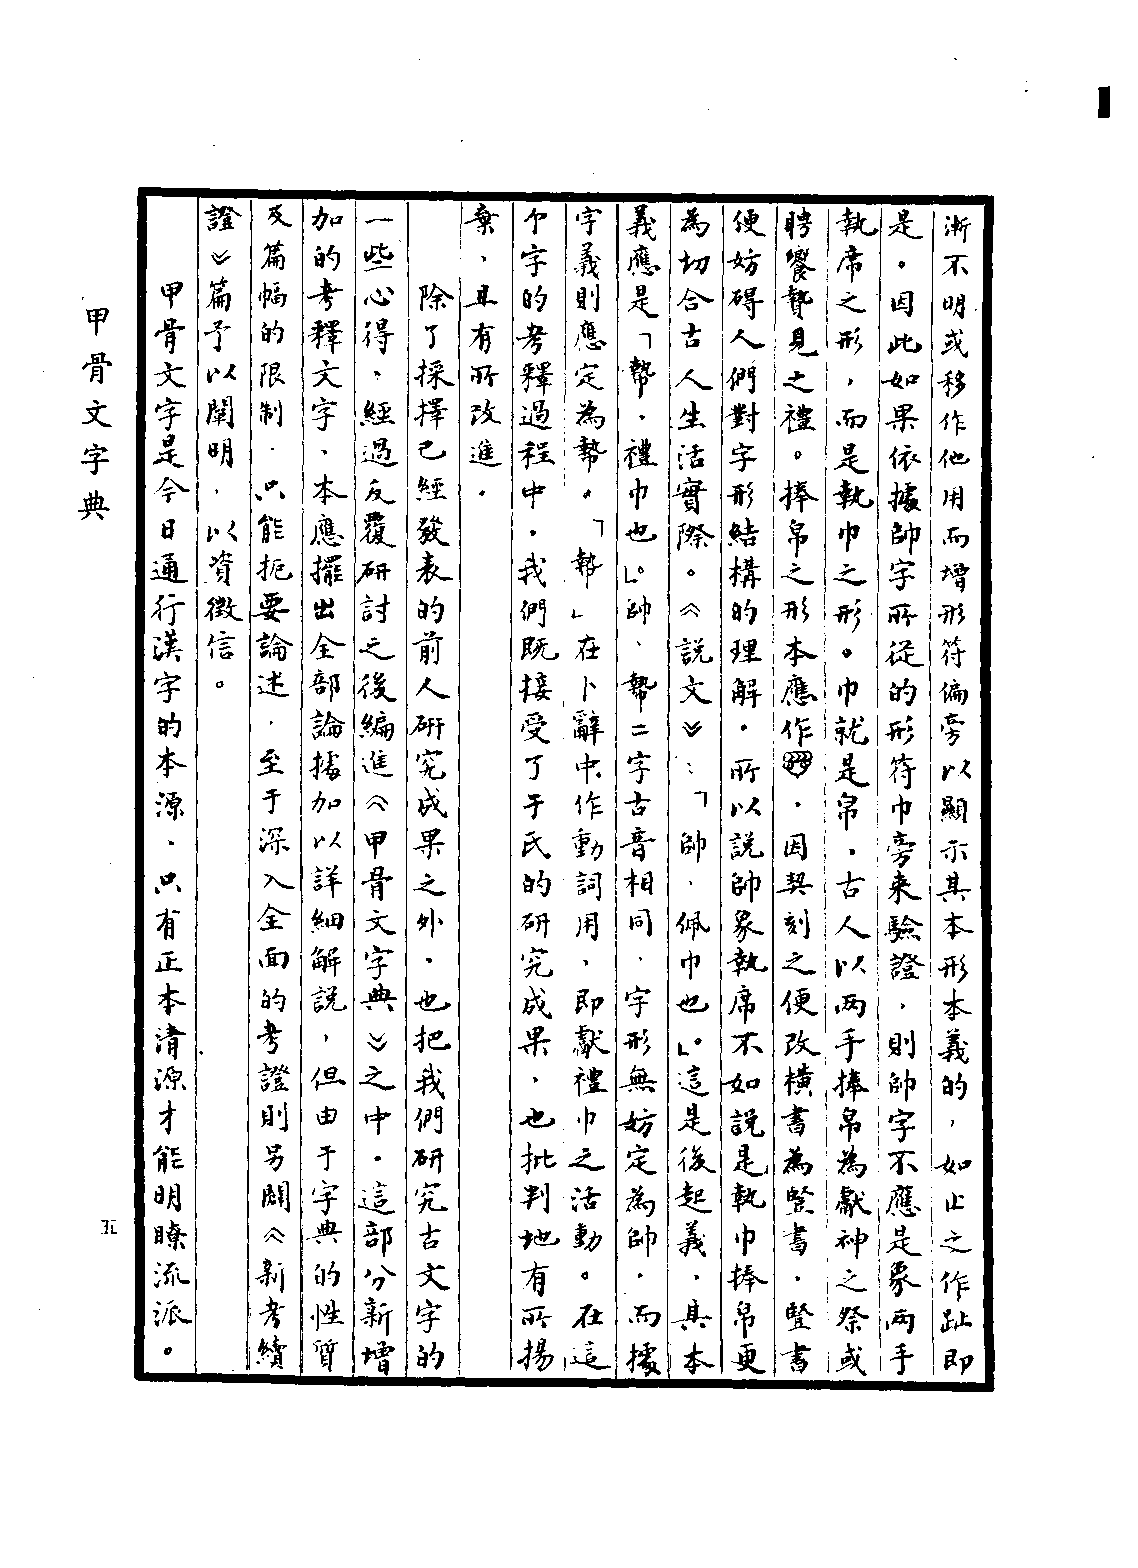 漸不明或移作他用而增形符偏旁以顯示其本形本義的，如止之作趾即
是。因此如果依據帥字所從的形符巾旁来驗證，則帥字不應是象兩手
執席之形，而是執巾之形。巾就是帛，古人以两手捧帛為獻神之祭或
聘饗贄見之禮。捧帛之形本應作，因契刻之便改橫書為竪書，豎書
便妨碍人們對字形結構的理解，所以説帥象執席不如説是執巾捧帛更
為切合古人生活實際。《説文》：「帥，佩巾也」。這是後起義，其本
義應是「幣，禮巾也」。帥、幣二字古音相同，字形無妨定為帥，而據
字義則應定為幣。「幣」在卜辭中作動詞用，即獻禮巾之活動。在這
个字的考釋過程中，我們既接受了于氏的研究成果，也批判地有所揚
棄，且有所改進。
除了採擇已經發表的前人研究成果之外，也把我們研究古文字的
一些心得，經過反覆研討之後編進《甲骨文字典》之中。這部分新增
加的考釋文字，本應擺出全部論據加以詳細解説，但由于字典的性質
及篇幅的限制，只能扼要論述，至于深入全面的考證則另闢《新考續
證》篇予以闡明，以資徵信。
甲骨文字是今日通行漢字的本源，只有正本清源才能明瞭流派。
甲骨文字典
五